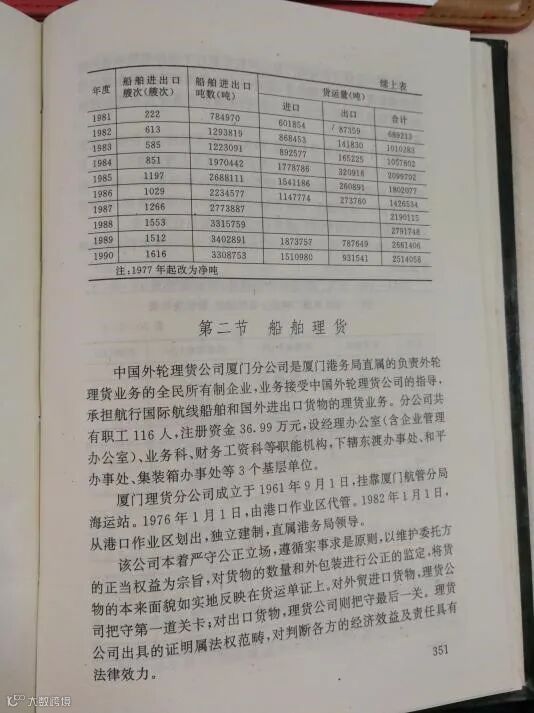 续上表
年度 船舶进出口艘次(艘次) 船舶进出口吨数(吨) 货运量(吨)
进口 出口 合计
1981 222 784970 601854 87359 689213
1982 613 1293819 868453 141830 1010283
1983 585 1223091 892577 165225 1057802
1984 851 1970442 1778786 320916 2099702
1985 1197 2688111 1541186 260891 1802077
1986 1029 2234577 1147774 273760 1426534
1987 1266 2773887 2190115
1988 1553 3315759 2791748
1989 1512 3402891 1873757 787649 2661406
1990 1616 3308753 1510980 931541 2514058
注:1977年起改为净吨
第二节 船舶理货
中国外轮理货公司厦门分公司是厦门港务局直属的负责外轮
理货业务的全民所有制企业,业务接受中国外轮理货公司的指导,
承担航行国际航线船舶和国外进出口货物的理货业务。分公司共
有职工116人,注册资金36.99万元,设经理办公室(含企业管理
办公室)、业务科、财务工资科等职能机构,下辖东渡办事处、和平
办事处、集装箱办事处等3个基层单位。
厦门理货分公司成立于1961年9月1日,挂靠厦门航管分局
海运站。1976年1月1日,由港口作业区代管。1982年1月1日,
从港口作业区划出,独立建制,直属港务局领导。
该公司本着严守公正立场,遵循实事求是原则,以维护委托方
的正当权益为宗旨,对货物的数量和外包装进行公正的监定,将货
物的本来面貌如实地反映在货运单证上。对外贸进口货物,理货公
司把守第一道关卡;对出口货物,理货公司则把守最后一关。理货
公司出具的证明属法权范畴,对判断各方的经济效益及责任具有
法律效力。
351
大数跨境